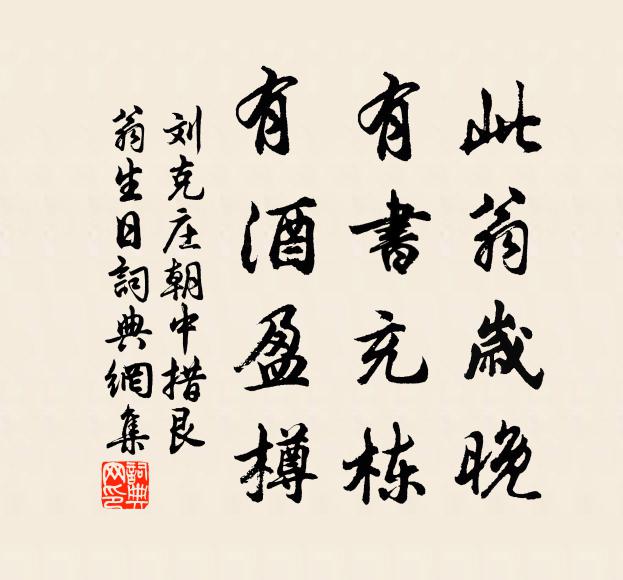 此翁歲晚
有書充栋
有酒盈樽
刘克庄朝中措艮
翁生日詞典網集
詞典网印